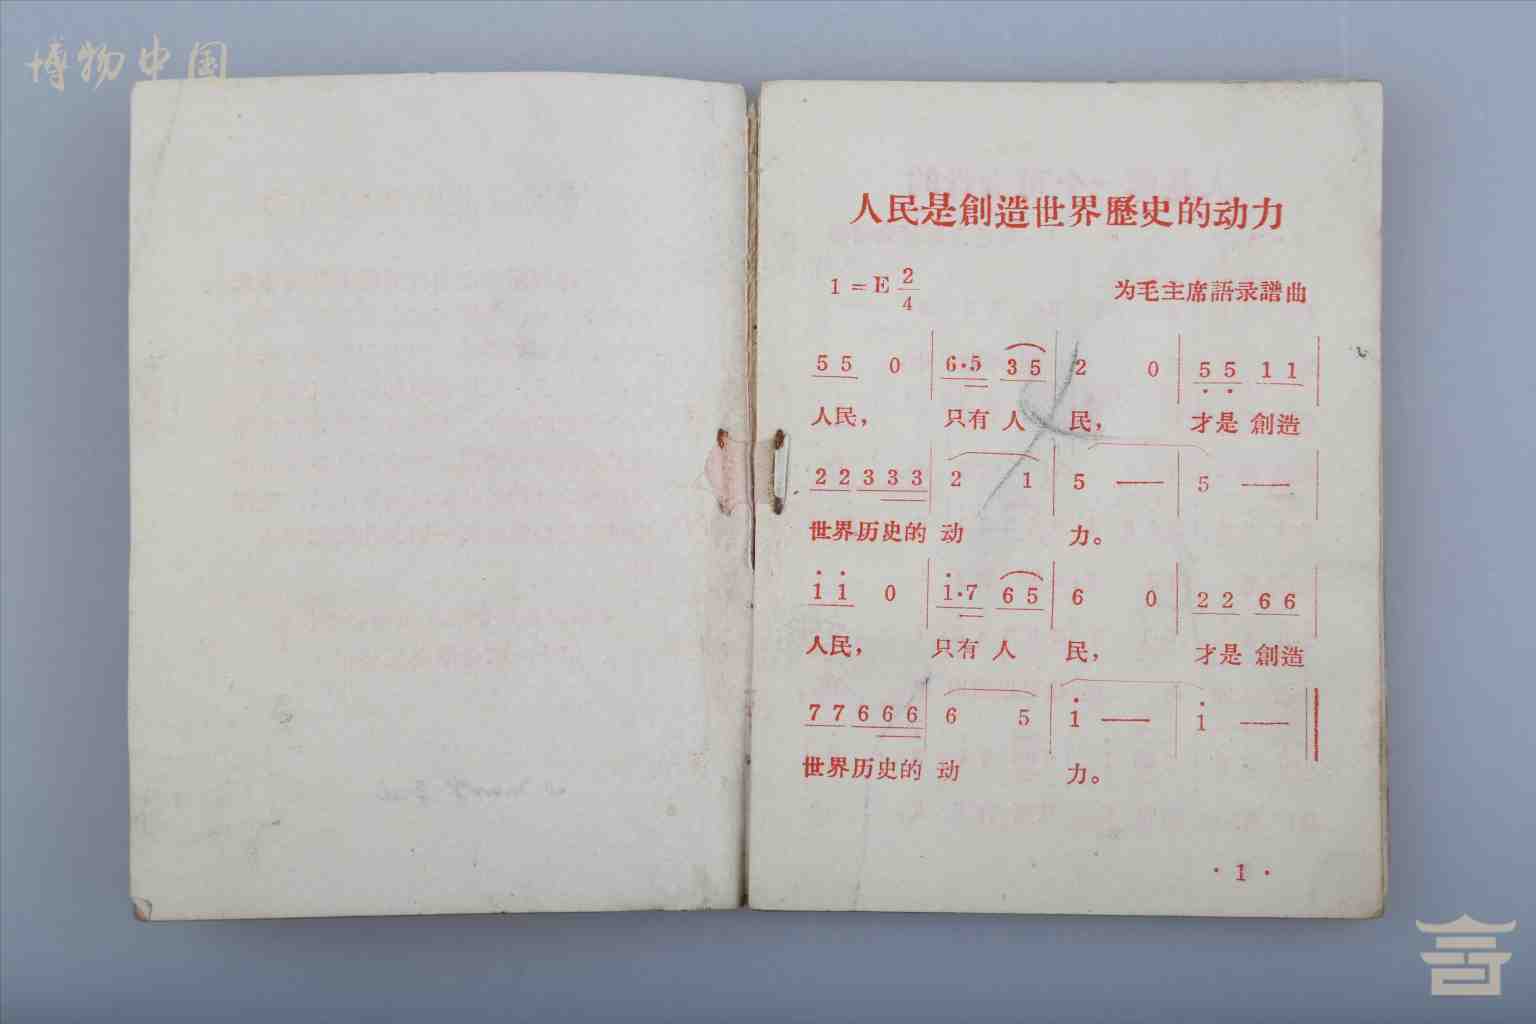 博物中国
人民是創造世界歷史的动力
1 = E 2/4
为毛主席語录譜曲
5 5 0 | 6·5 3 5 | 2 0 | 5 5 1 1 |
人民， 只有 人 民， 才是 創造
2 2 3 3 3 | 2 1 | 5 — | 5 — |
世界历史的 动 力。
1 1 0 | 1·7 6 5 | 6 0 | 2 2 6 6 |
人民， 只有 人 民， 才是 創造
7 7 6 6 6 | 6 5 | 1 — | 1 — ‖
世界历史的 动 力。
· 1 ·